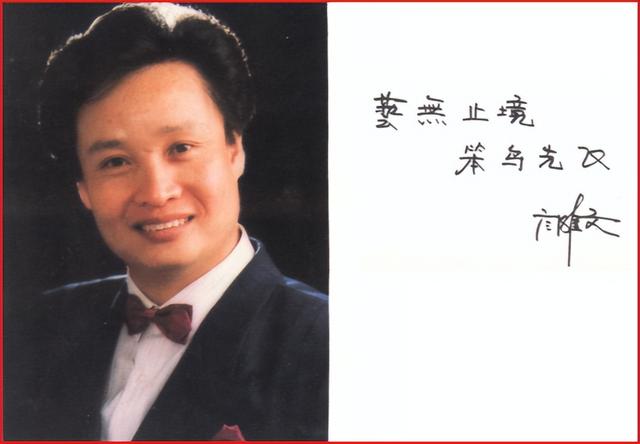 藝無止境
笨鸟先飞